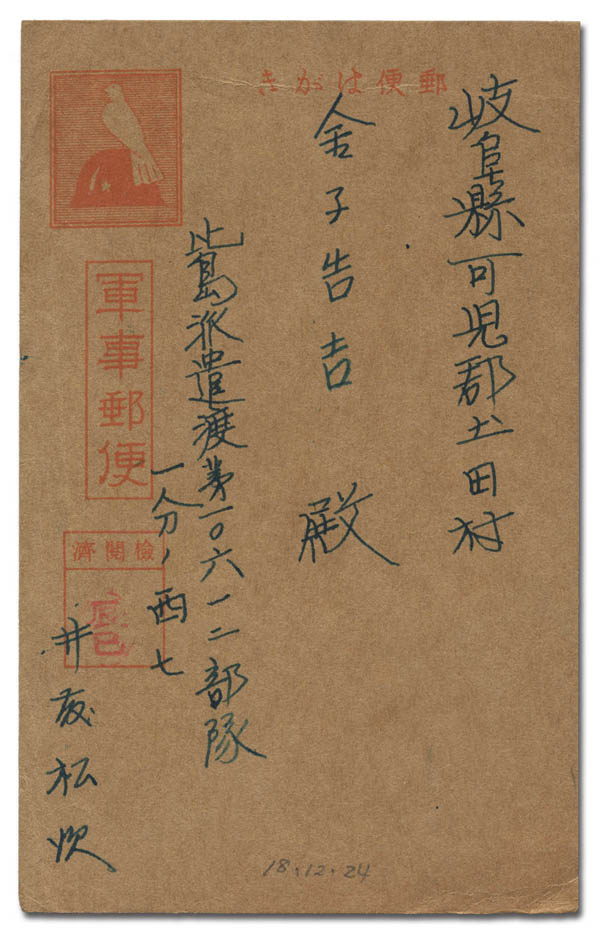 郵便はがき
岐阜縣可児郡土田村
金子告吉 殿
比島派遣渡第一〇六一二部隊
西七
井 松
軍事郵便
検閲濟
18.12.24